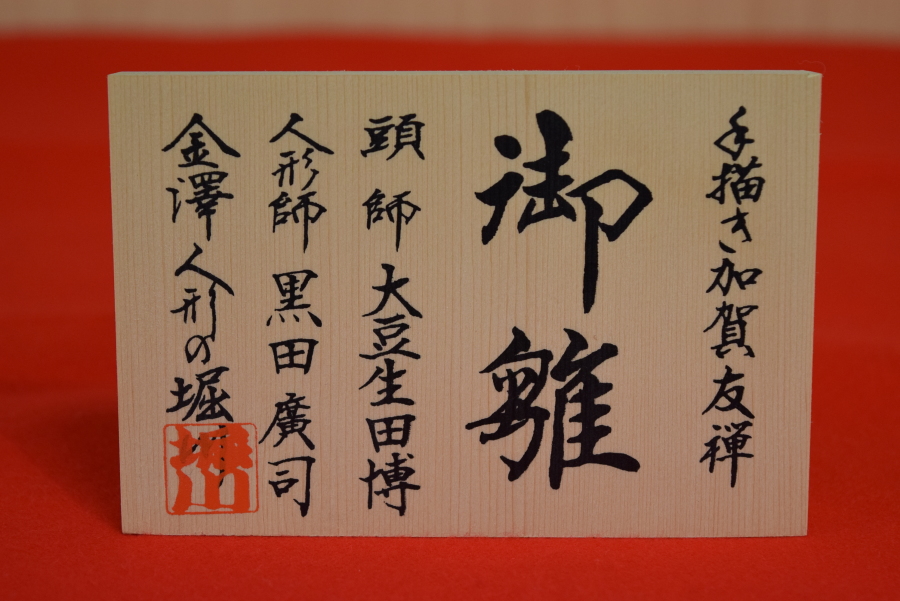 手描き加賀友禅
御雛
頭師 大豆生田博
人形師 黒田廣司
金澤 人形の堀川
堀川